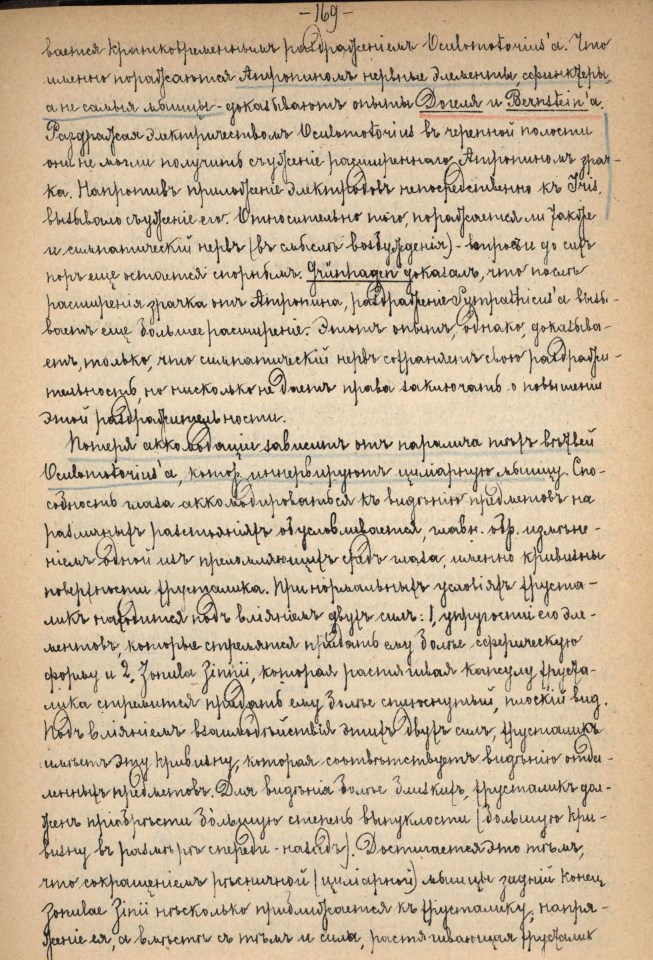 -169-
вается кратковременнымъ раздраженіемъ Oculomotorius'a. Что
именно поражаются Атропиномъ нервные элементы сфинктеры,
а не самыя мышцы - доказываютъ опыты Догеля и Bernstein'a.
Раздражая электричествомъ Oculomotorius въ черепной полости
они не могли получить съуженіе расширеннаго Атропиномъ зрач-
ка. Напротивъ приложеніе электродовъ непосредственно къ Iris,
вызывало съуженіе его. Относительно того, поражается ли также
и симпатическій нервъ (въ смыслѣ возбужденія) - вопросъ и до сихъ
поръ еще остается спорнымъ. Grünhagen доказалъ, что послѣ
расширенія зрачка отъ Атропина, раздраженіе Sympathicus'a вызы-
ваетъ еще большее расширеніе. Этотъ опытъ, однако, доказыва-
етъ, только, что симпатическій нервъ сохраняетъ свою раздражи-
тельность, но нисколько не даетъ права заключать о повышеніи
этой раздражительности.
Потеря аккомодаціи зависитъ отъ паралича тѣхъ вѣтвей
Oculomotorius'a, котор. иннервируютъ циліарную мышцу. Спо-
собность глаза аккомодироваться къ видѣнію предметовъ на
различныхъ разстояніяхъ обусловливается, главн. обр. измѣне-
ніемъ одной изъ преломляющихъ средъ глаза, именно кривизны
поверхности хрусталика. При нормальныхъ условіяхъ хруста-
ликъ находится подъ вліяніемъ двухъ силъ: 1, упругости его эле-
ментовъ, которые стремятся придать ему болѣе сферическую
форму и 2, Zonula Zinnii, которая растягивая капсулу хруста-
лика стремится придать ему болѣе сплюснутый, плоскій видъ.
Подъ вліяніемъ взаимодѣйствія этихъ двухъ силъ, хрусталикъ
имѣетъ эту кривизну, которая соотвѣтствуетъ видѣнію отда-
ленныхъ предметовъ. Для видѣнія болѣе близкихъ, хрусталикъ дол-
женъ пріобрѣсти бо́льшую степень выпуклости (большую кри-
визну въ размѣрѣ спереди-назадъ). Достигается это тѣмъ,
что сокращеніемъ рѣсничной (циліарной) мышцы задній конец
Zonulae Zinii нѣсколько приближается къ хрусталику, напря-
женіе ея, а вмѣстѣ съ тѣмъ и сила, растягивающая хрусталик